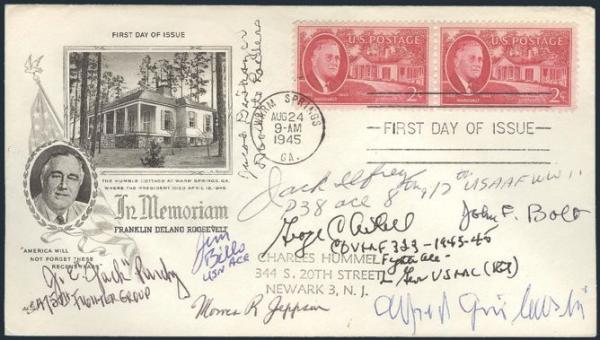 FIRST DAY OF ISSUE
U.S. POSTAGE
U.S. POSTAGE
ROOSEVELT
2¢
ROOSEVELT
2¢
WARM SPRINGS
AUG 24
9-AM
1945
GA.
FIRST DAY OF ISSUE
THE HUMBLE COTTAGE AT WARM SPRINGS, GA.
WHERE THE PRESIDENT DIED APRIL 12, 1945
In Memoriam
FRANKLIN DELANO ROOSEVELT
"AMERICA WILL
NOT FORGET THESE
Jack Ilfrey
P38 ace 8
USAAF WW II
John F. Bolt
George C Axtell
COVMF 323-1945-45
Fighter Ace
Lt Gen USMC (Ret)
CHARLES HUMMEL
344 S. 20TH STREET
NEWARK 3, N. J.
Jim
Bello
USN ACE
J. E. "Jack" Purdy
Fighter GROUP
Morris R Jeppson
Alfred